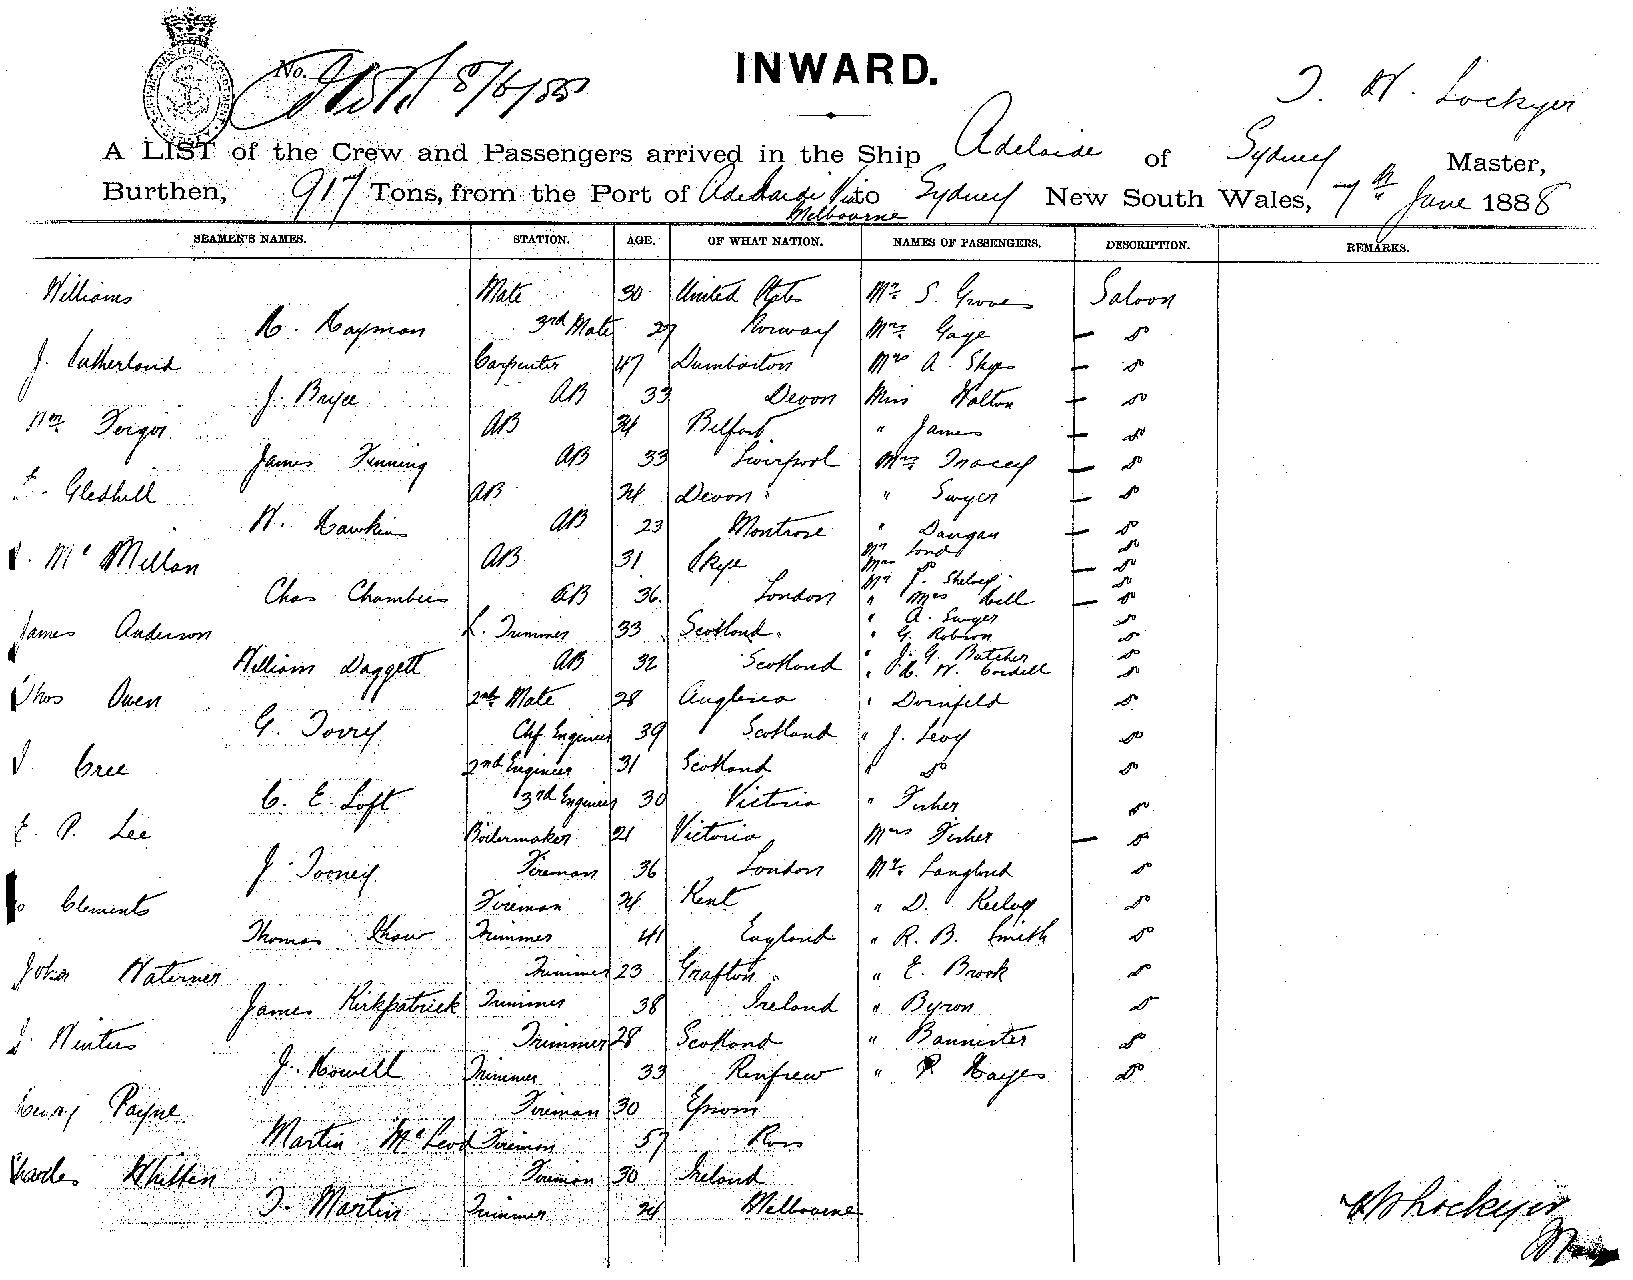 INWARD.
No. 8/6/88
T. W. Lockyer
A LIST of the Crew and Passengers arrived in the Ship Adelaide of Sydney Master,
Burthen, 917 Tons, from the Port of Adelaide Via Melbourne to Sydney New South Wales, 7th June 1888
SEAMEN'S NAMES. STATION. AGE. OF WHAT NATION. NAMES OF PASSENGERS. DESCRIPTION. REMARKS.
Williams Mate 30 United States Mr S. Groves Saloon
H. Hayman 3rd Mate 27 Norway Mrs Gage — do
J. Sutherland Carpenter 47 Dumbarton Mrs A. Skyes — do
J. Bryce AB 33 Devon Miss Walton — do
Wm AB 24 Belfast " James — do
James Finning AB 33 Liverpool Mrs Tracey — do
Gledhill AB 24 Devon " Swyer — do
W. Hawkins AB 23 Montrose " Dangan — do
McMillan AB 31 Skye Mr Lond do
Mrs do — do
Chas Chambers AB 36 London Mr J. Shelvey do
" Mrs Hill — do
James Anderson L. Trimmer 33 Scotland " A. Swyer do
" G. Robson do
William Daggett AB 32 Scotland " J. G. Butcher do
" W. Cordell do
Thos Owen 2nd Mate 28 Anglesea " Dornfeld do
G. Tovey Chf. Engineer 39 Scotland " J. Levy do
Cree 2nd Engineer 31 Scotland " do do
C. E. Loft 3rd Engineer 30 Victoria " Fisher do
E. P. Lee Boilermaker 21 Victoria Mrs Fisher — do
J. Tooney Fireman 36 London Mr Langland do
Clements Fireman 24 Kent " D. Keeley do
Thomas Shaw Trimmer 41 England " R. B. Smith do
John Waterner Trimmer 23 Grafton " E. Brook do
James Kirkpatrick Trimmer 38 Ireland " Byron do
J. Winters Trimmer 28 Scotland " Bannister do
J. Howell Trimmer 33 Renfrew " P. Hayes do
Henry Payne Fireman 30 Epsom
Martin McLeod Fireman 57 Ross
Charles Whitten Fireman 30 Ireland
T. Martin Trimmer 24 Melbourne
Lockyer